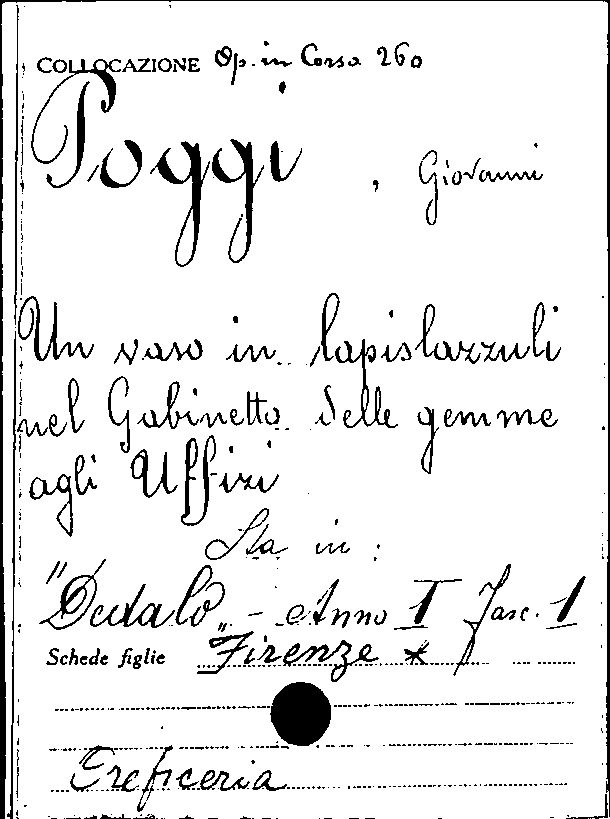 COLLOCAZIONE Op. in Corso 260
Poggi, Giovanni
Un vaso in lapislazzuli
nel Gabinetto delle gemme
agli Uffizi
Sta in:
"Dedalo" - Anno I Fasc. 1
Schede figlie Firenze *
Oreficeria